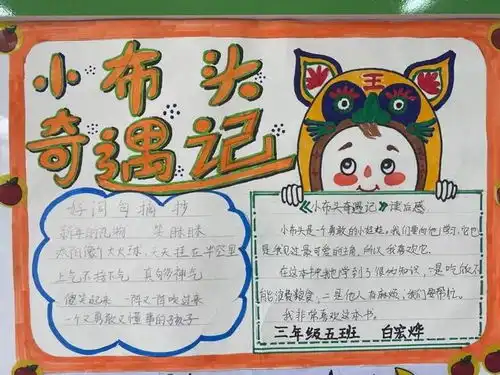 小布头
奇遇记
好词句摘抄
新年的礼物 笑眯眯
太阳像个大火球,天天挂在半空里
上气不接下气 真够神气
傻笑起来 一阵又一阵吹过来
一个又勇敢又懂事的孩子
王
《小布头奇遇记》读后感
小布头是个勇敢的小娃娃,我们要向他学习,它也
是我见过最可爱的主角,所以我喜欢它。
在这本书我学到了很多知识,一是吃饭不
能浪费粮食,二是他人有麻烦,我们要帮忙。
我非常喜欢这本书。
三年级五班 白宏烨